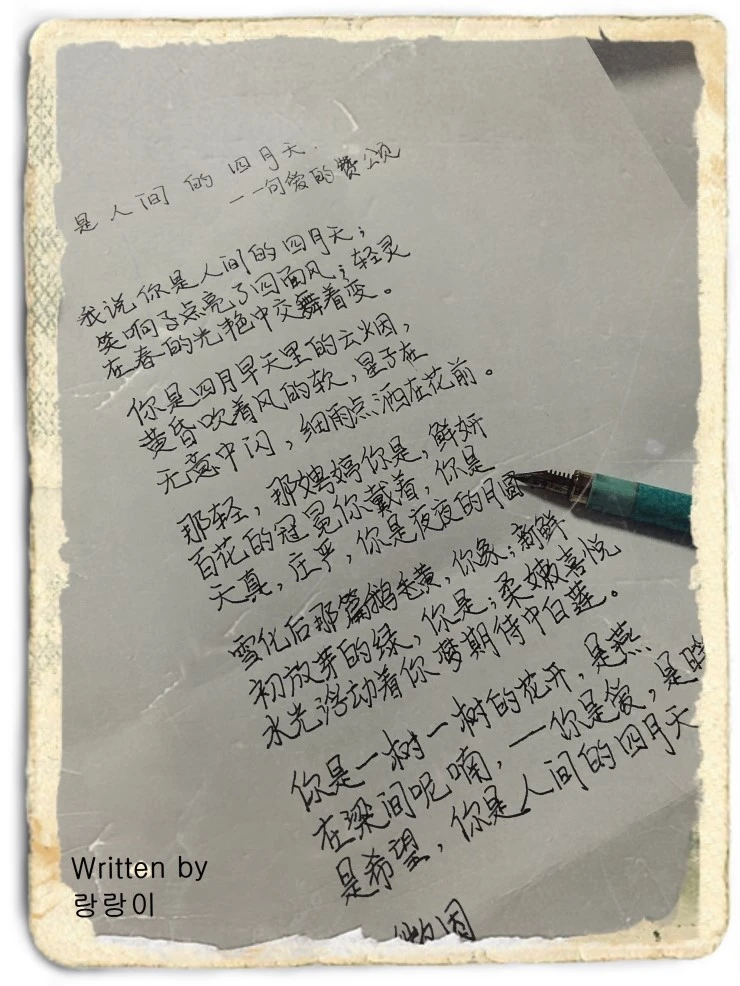 是人间的四月天
——一句爱的赞颂
我说你是人间的四月天；
笑响了点亮了四面风；轻灵
在春的光艳中交舞着变。
你是四月早天里的云烟，
黄昏吹着风的软，星子在
无意中闪，细雨点洒在花前。
那轻，那娉婷你是，鲜妍
百花的冠冕你戴着，你是
天真，庄严，你是夜夜的月圆
雪化后那篇鹅毛黄，你象；新鲜
初放芽的绿，你是；柔嫩喜悦
水光浮动着你梦期待中白莲。
你是一树一树的花开，是燕
在梁间呢喃，—你是爱，是暖
是希望，你是人间的四月天
Written by
랑랑이